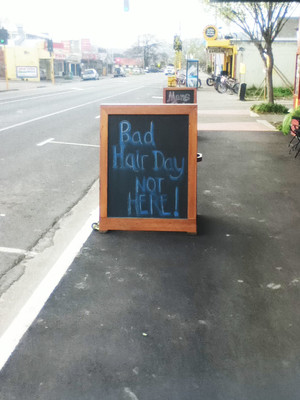 Bad
Hair Day
NOT
HERE!